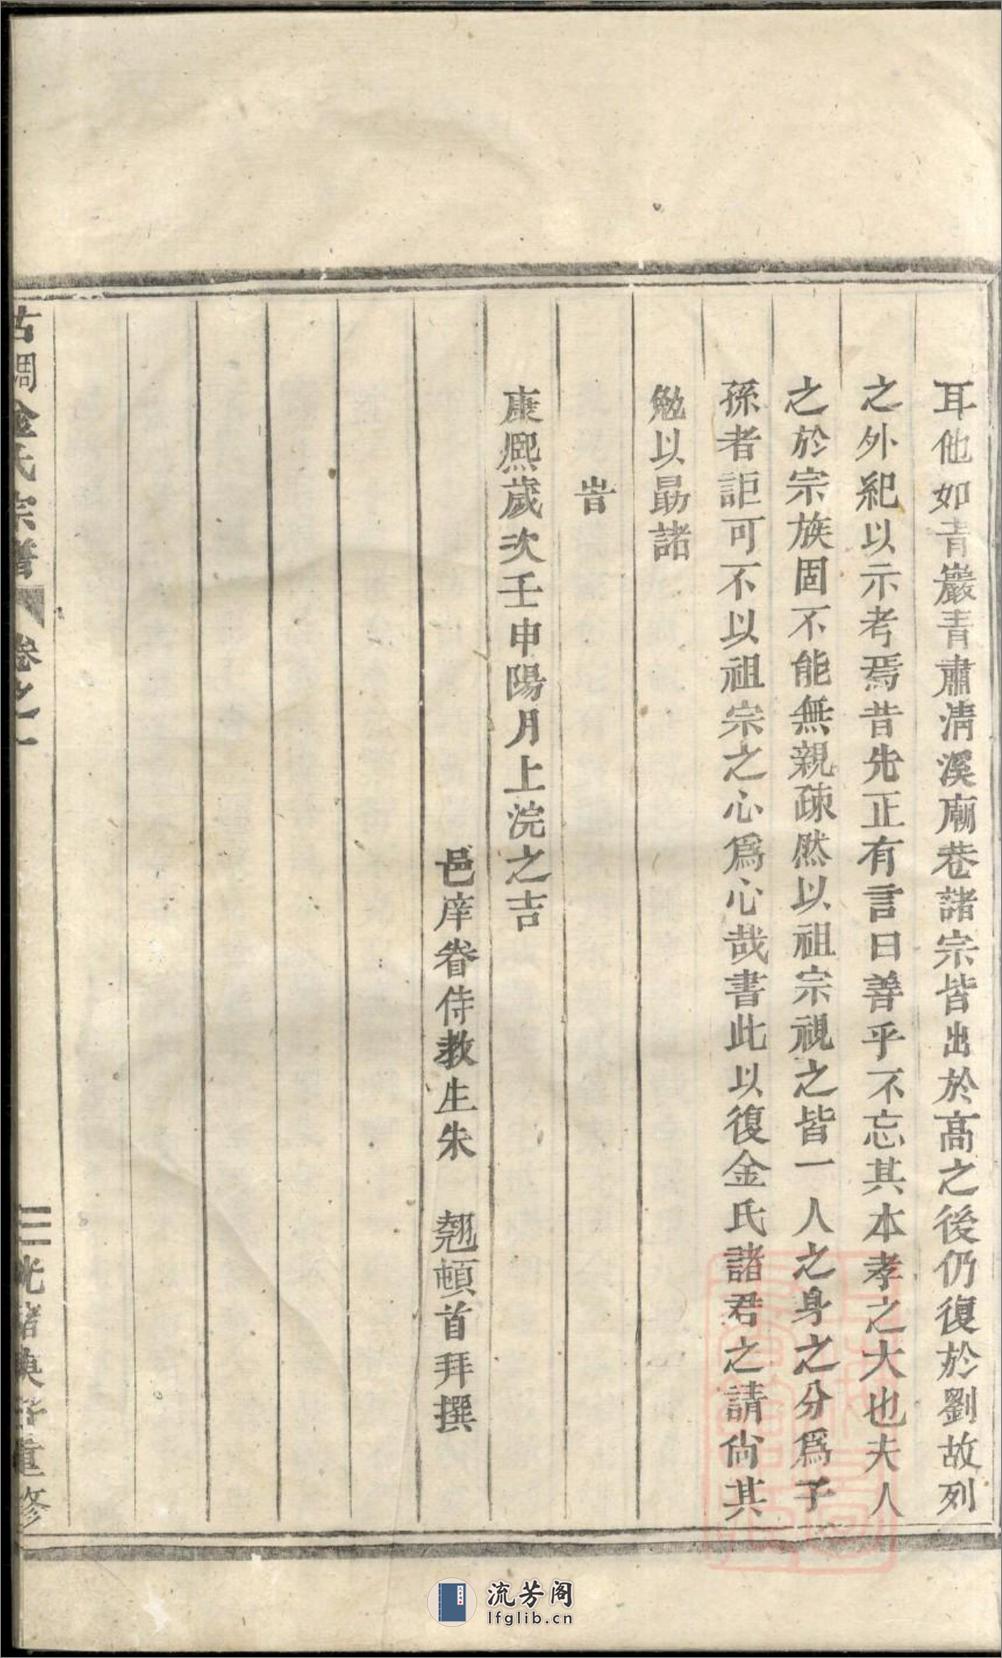 耳他如青巖青肅淸溪廟巷諸宗皆出於高之後仍復於劉故列
之外紀以示考焉昔先正有言曰善乎不忘其本孝之大也夫人
之於宗族固不能無親疎然以祖宗視之皆一人之身之分爲子
孫者詎可不以祖宗之心爲心哉書此以復金氏諸君之請尙其
勉以勗諸
旹
康熙歲次壬申陽月上浣之吉
邑庠眷侍教生朱　翹頓首拜撰
古調金氏宗譜　卷之一　二　光緒庚子重修
流芳阁
lfglib.cn